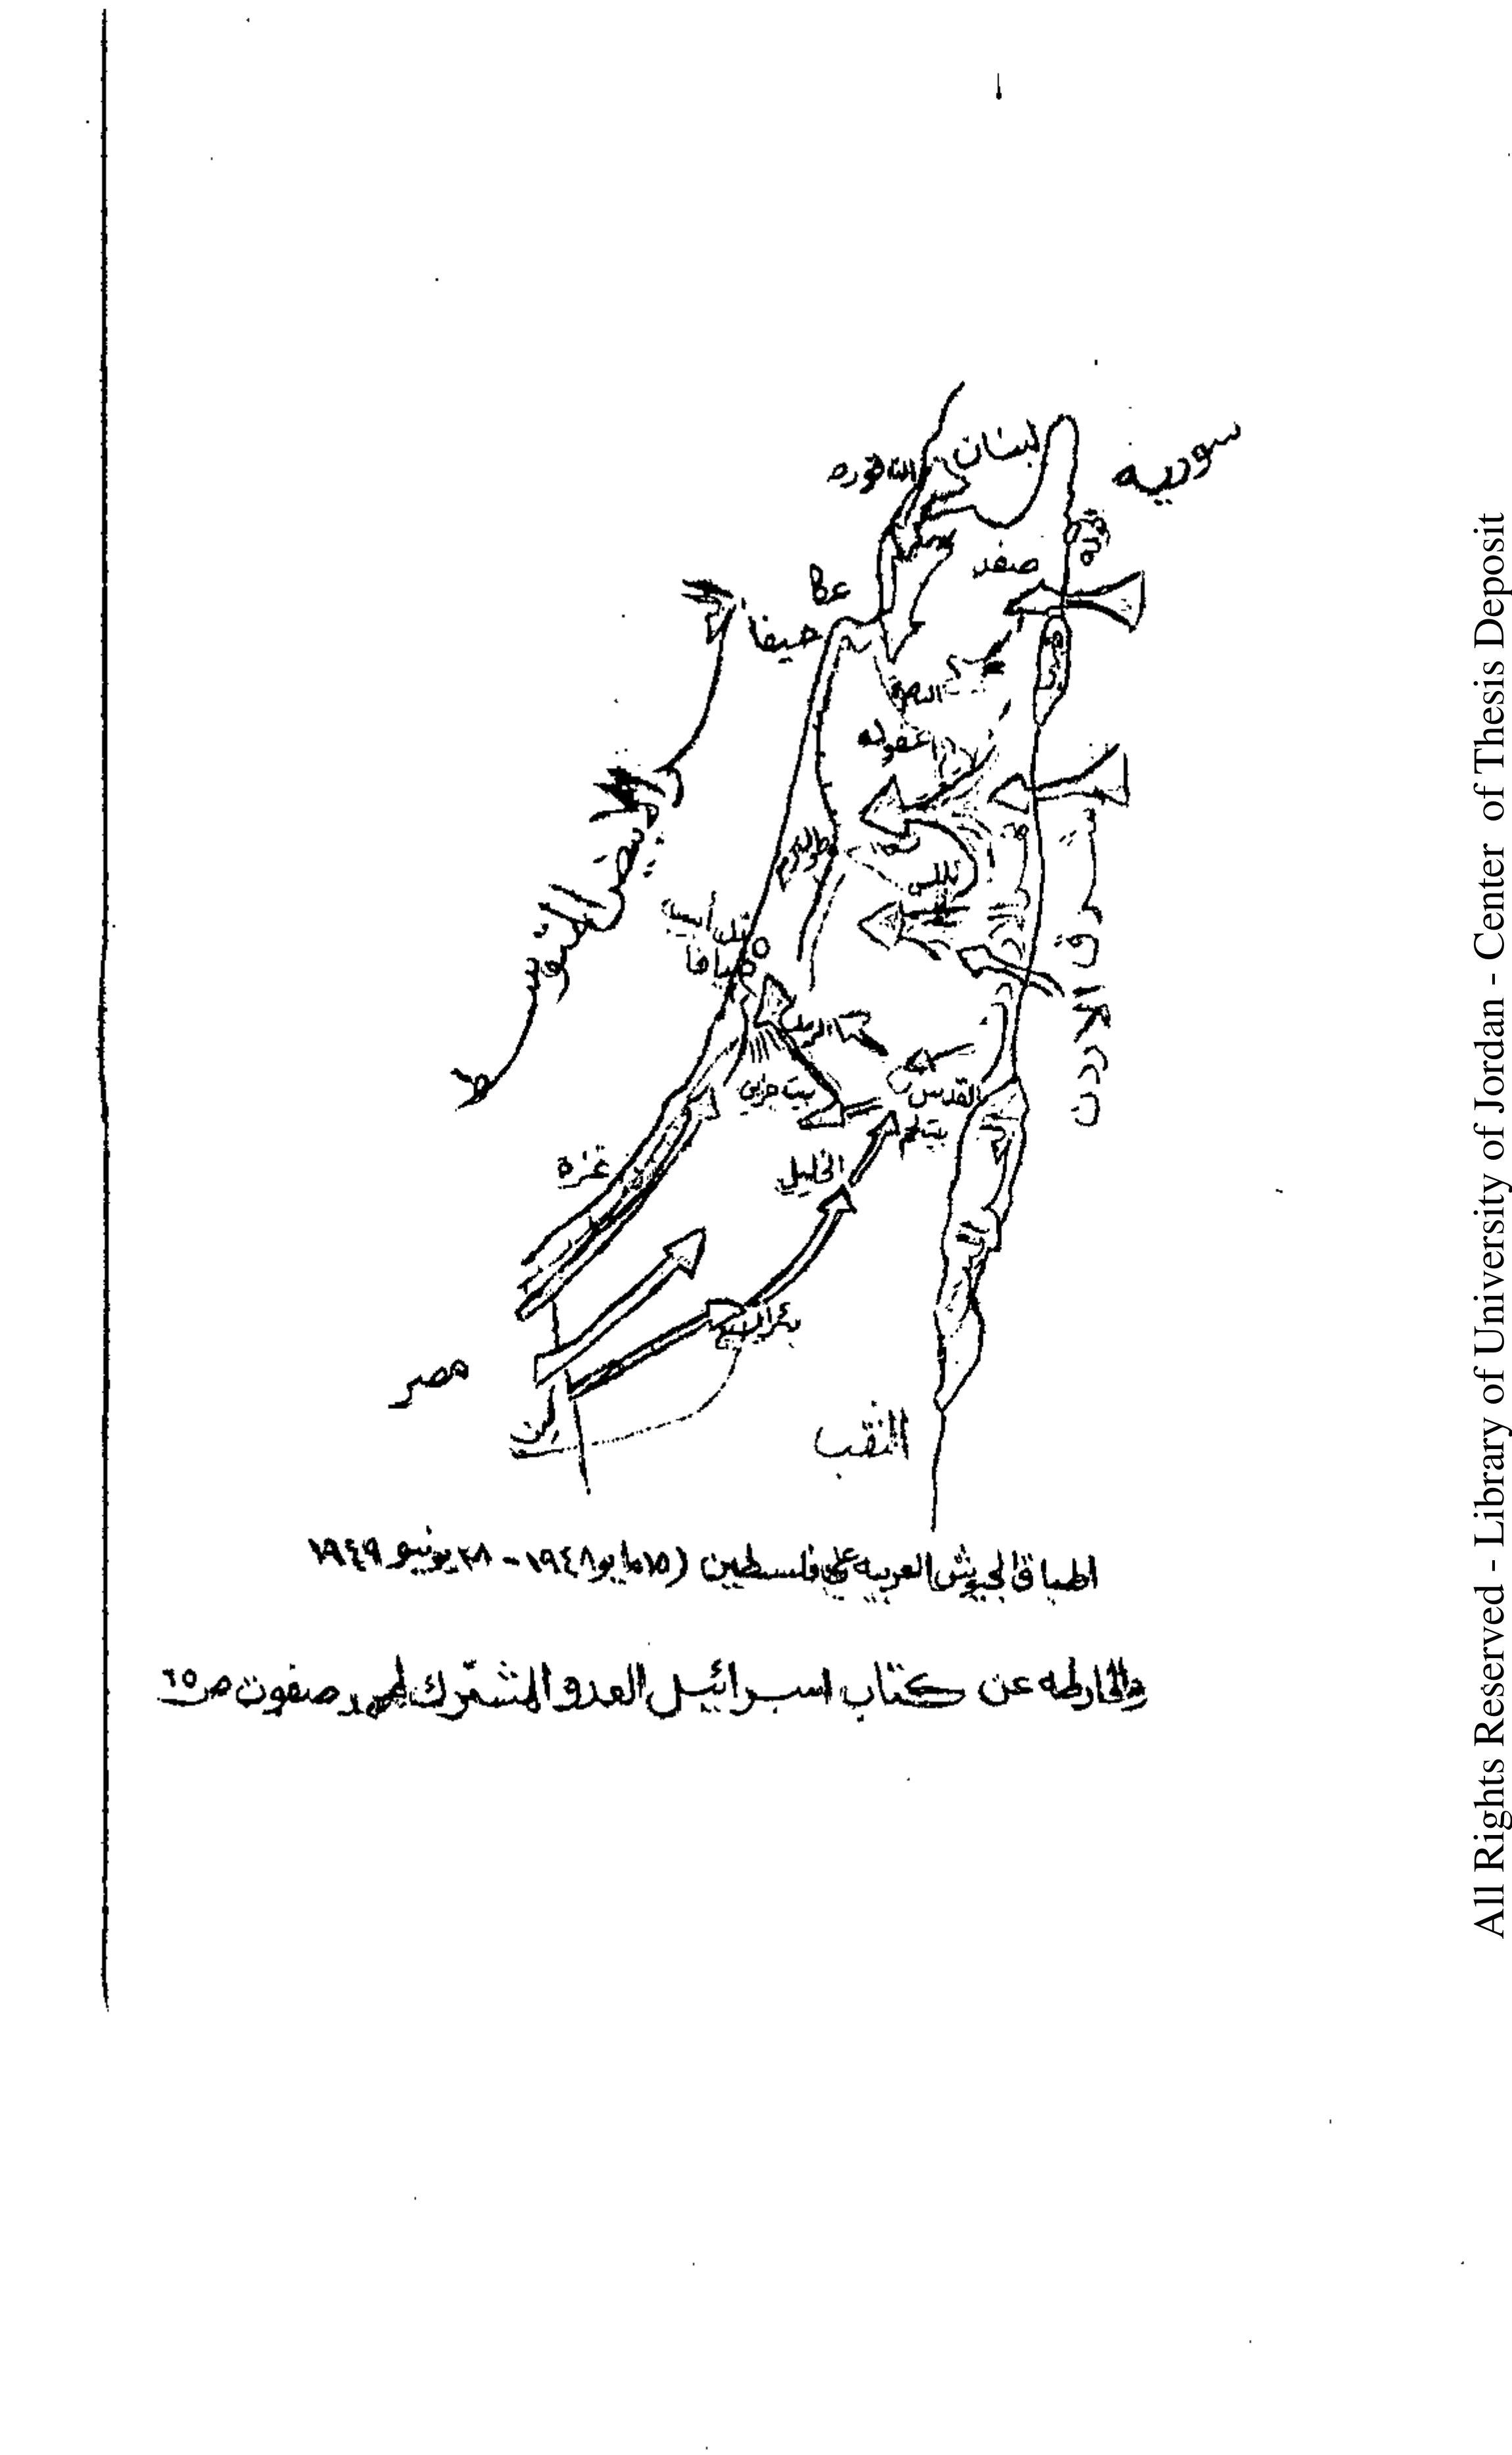 سوريه
لبنان
الناقوره
صفد
عكا
حيفا
عفوله
طولكرم
نابلس
يافا
القدس
بيت لحم
الخليل
غزة
مصر
النقب
اطباق الجيوش العربيه على فلسطين (١٥ مايو ١٩٤٨ - ٢٨ يونيو ١٩٤٩
والخارطه عن كتاب اسرائيل العدو المشترك لمحمد صفوت ص ٦٥
All Rights Reserved - Library of University of Jordan - Center of Thesis Deposit